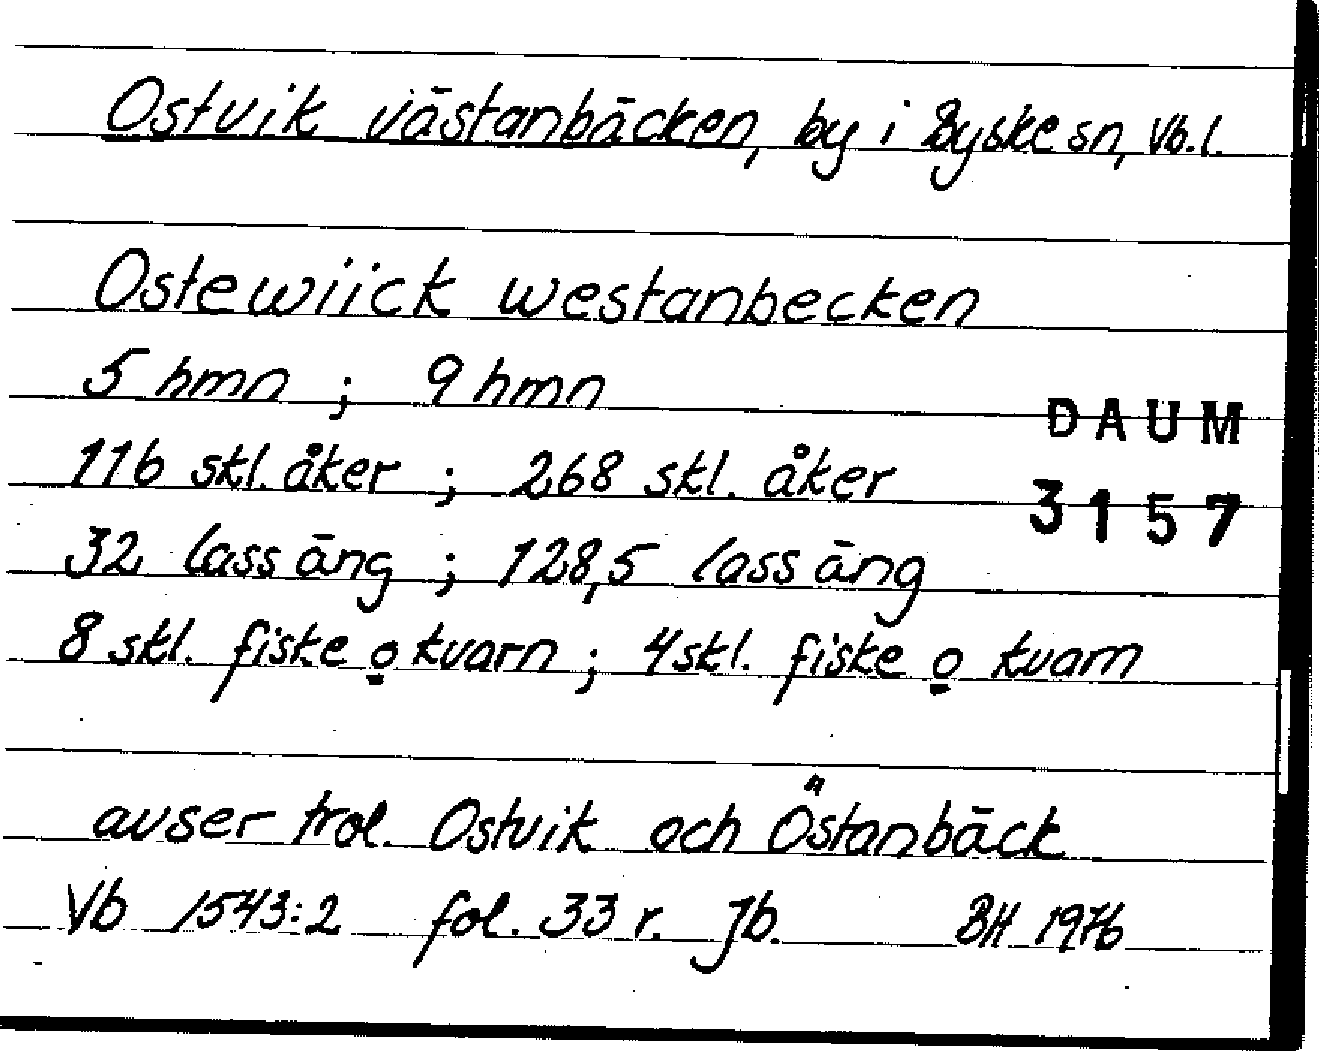 Ostvik västanbäcken, by i Byske sn, Vb.l.
Ostewiick westanbecken
5 hmn ; 9 hmn
DAUM
116 skl. åker ; 268 skl. åker
3157
32 lass äng ; 128,5 lass äng
8 skl. fiske o kvarn ; 4 skl. fiske o kvarn
avser trol. Ostvik och Östanbäck
Vb 1543:2 fol. 33 r. Jb. BH 1976